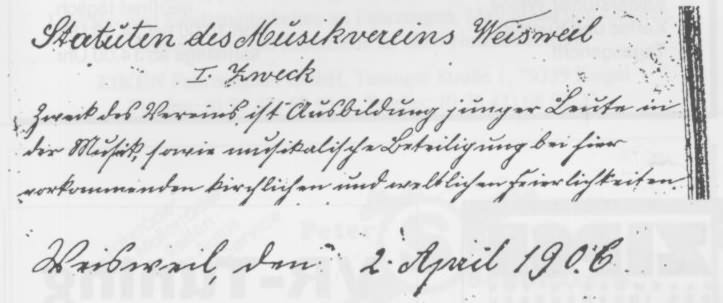 Statuten des Musikvereins Weisweil
I. Zweck
Zweck des Vereins ist Ausbildung junger Leute in
der Musik, sowie musikalische Beteiligung bei hier
vorkommenden kirchlichen und weltlichen Feierlichkeiten.
Weisweil, den 2. April 1906.